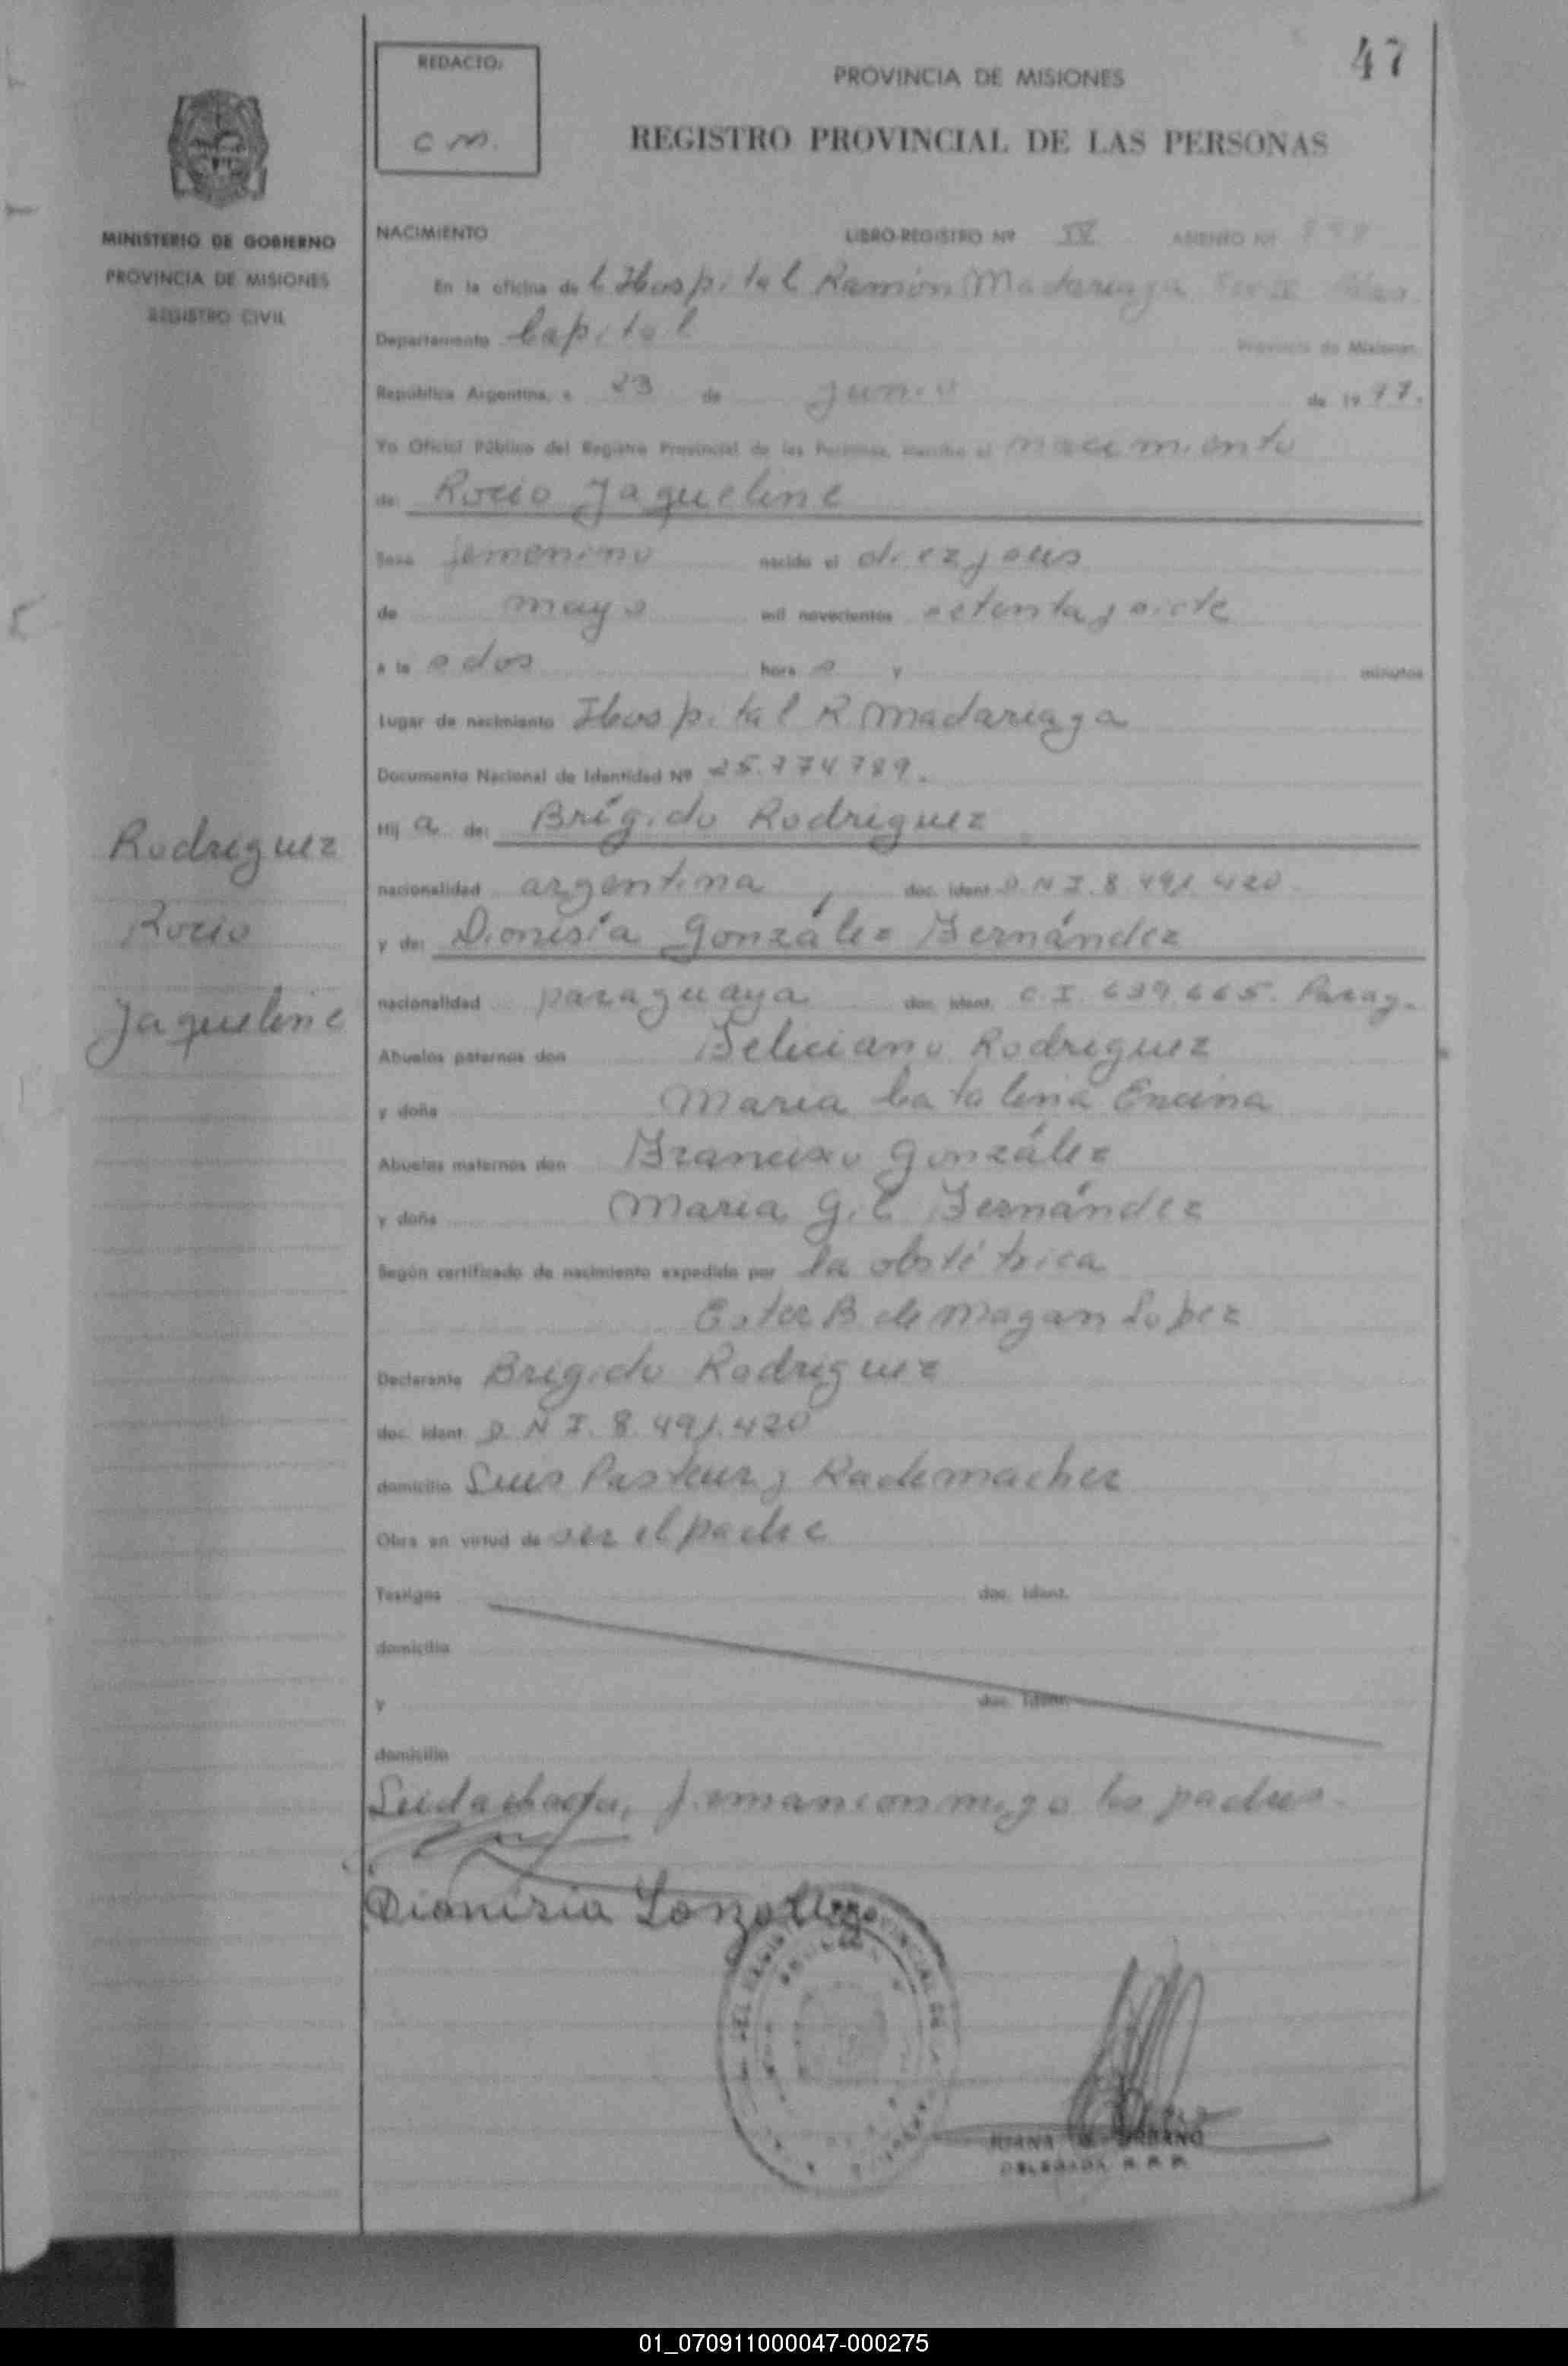 47
REDACTO:
C M.
PROVINCIA DE MISIONES
REGISTRO PROVINCIAL DE LAS PERSONAS
MINISTERIO DE GOBIERNO
PROVINCIA DE MISIONES
REGISTRO CIVIL
NACIMIENTO LIBRO-REGISTRO Nº IV ASIENTO Nº
En la oficina de l Hospital Ramón Madariaga
Departamento Capital Provincia de Misiones,
República Argentina, a 23 de junio de 1977.
Yo Oficial Público del Registro Provincial de las Personas, inscribo el nacimiento
de: Rocio Jaqueline
Sexo femenino nacido el diez y seis
de mayo mil novecientos setenta y siete
a la s dos hora s y minutos
Lugar de nacimiento Hospital R Madariaga
Documento Nacional de Identidad Nº 25.774789.
Hij a de: Brígido Rodriguez
nacionalidad argentina, doc. ident. D.N.I. 8.491.420
y de: Dionisia González Fernández
nacionalidad paraguaya doc. ident. C.I. 639.665. Parag.
Abuelos paternos don Feliciano Rodriguez
y doña Maria Catalina Encina
Abuelos maternos don Francisco González
y doña Maria Gil Fernández
Según certificado de nacimiento expedido por la obstétrica
Ester B de Magan Lopez
Declarante Brigido Rodriguez
doc. ident. D.N.I. 8.491.420
domicilio Luis Pasteur y Rademacher
Obra en virtud de ser el padre
Testigos doc. ident.
domicilio
y doc. ident.
domicilio
Leida el acta, firman conmigo los padres.
Rodriguez
Rocio
Jaqueline
Dionisia Gonzalez
JUANA URBANO
DELEGADA R. P. P.
01_070911000047-000275